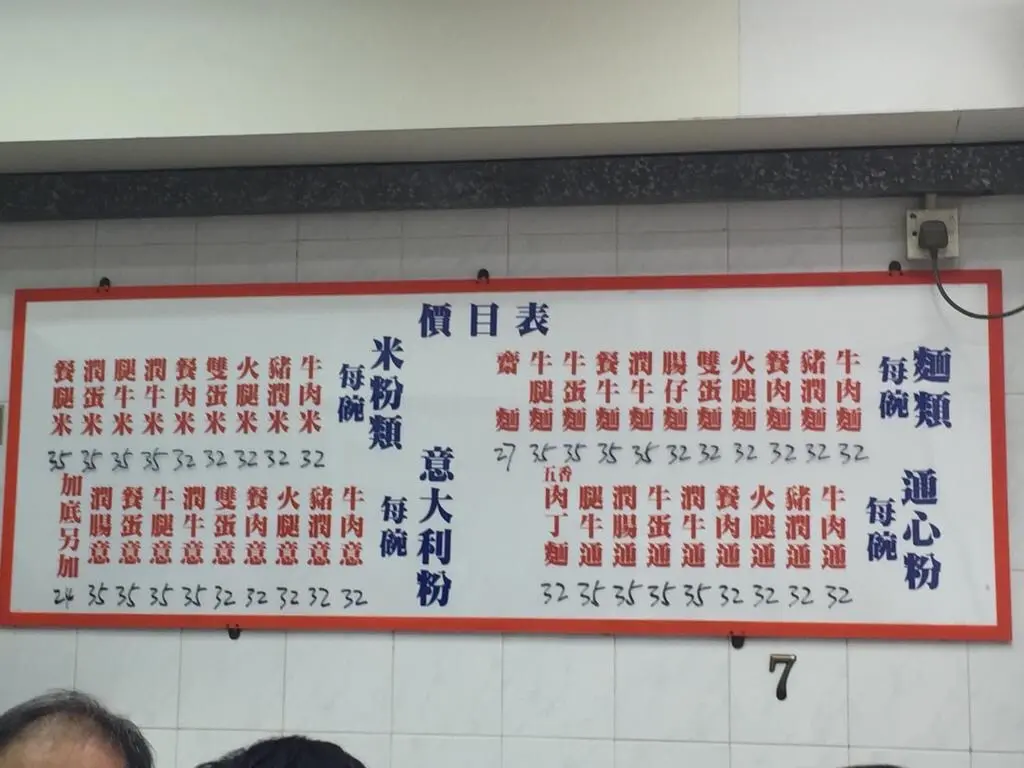 價目表
麵類
每碗
牛肉麵 32
豬潤麵 32
餐肉麵 32
火腿麵 32
雙蛋麵 32
腸仔麵 32
潤牛麵 35
餐牛麵 35
牛蛋麵 35
牛腿麵 35
齋麵 27
通心粉
每碗
牛肉通 32
豬潤通 32
火腿通 32
餐肉通 32
潤牛通 35
牛蛋通 35
潤腸通 35
腿牛通 35
五香肉丁麵 32
米粉類
每碗
牛肉米 32
豬潤米 32
火腿米 32
雙蛋米 32
餐肉米 32
潤牛米 35
腿牛米 35
潤蛋米 35
餐腿米 35
意大利粉
每碗
牛肉意 32
豬潤意 32
火腿意 32
餐肉意 32
雙蛋意 32
潤牛意 35
牛腿意 35
餐蛋意 35
潤腸意 35
加底另加 24
7